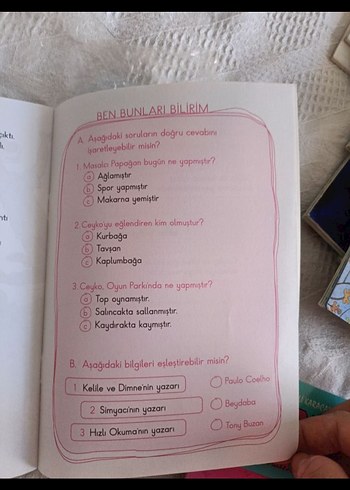 BEN BUNLARI BİLİRİM
A. Aşağıdaki soruların doğru cevabını
işaretleyebilir misin?
1. Masalcı Papağan bugün ne yapmıştır?
a Ağlamıştır
b Spor yapmıştır
c Makarna yemiştir
2. Ceyko'yu eğlendiren kim olmuştur?
a Kurbağa
b Tavşan
c Kaplumbağa
3. Ceyko, Oyun Parkında ne yapmıştır?
a Top oynamıştır.
b Salıncakta sallanmıştır.
c Kaydırakta kaymıştır.
B. Aşağıdaki bilgileri eşleştirebilir misin?
1 Kelile ve Dimne'nin yazarı
Paulo Coelho
2 Simyacı'nın yazarı
Beydaba
3 Hızlı Okuma'nın yazarı
Tony Buzan